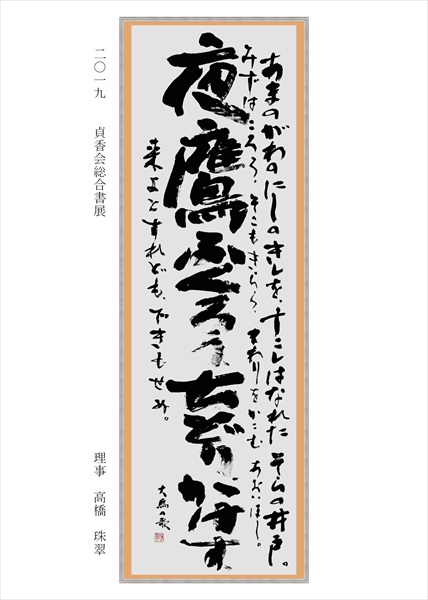 あまのがわの にしのきしを、すこしはなれた そらの井戸。
みずはころろ、そこもきらら、まわりをかこむ あおいほし。
夜鷹ふくろうちどりかけす
来よとすれども、できもせぬ。
大烏の歌
二〇一九 貞香会総合書展
理事 高橋 珠翠